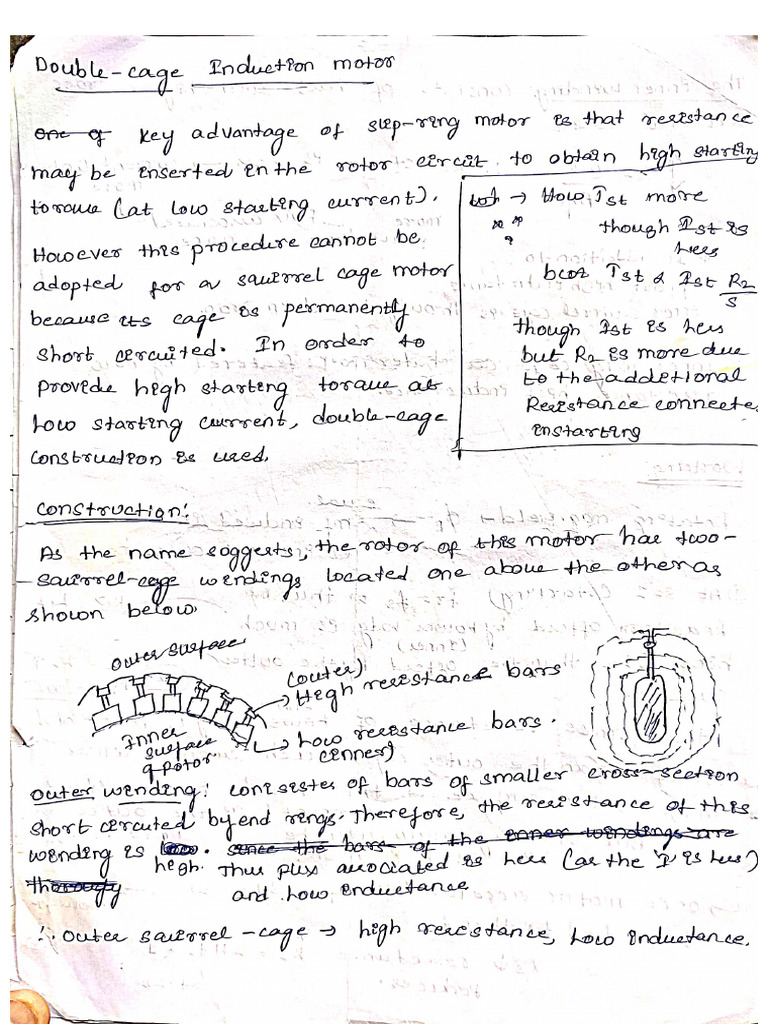 Double-cage Induction motor
~~One of~~ Key advantage of slip-ring motor is that resistance
may be inserted in the rotor circuit to obtain high starting
torque (at low starting current).
However this procedure cannot be
adopted for a squirrel cage motor
because its cage is permanently
short circuited. In order to
provide high starting torque at
low starting current, double-cage
construction is used.
→ How Tst more
though Ist is
less
bcoz Tst α Ist R2/S
though Ist is less
but R2 is more due
to the additional
Resistance connected
in starting
Construction:
As the name suggests, the rotor of this motor has two-
squirrel-cage windings located one above the other as
shown below
outer surface
(outer)
→ High resistance bars
Inner
surface
of rotor
→ Low resistance bars.
(inner)
Outer winding: consistes of bars of smaller cross-section
short circuted by end rings. Therefore, the resistance of this
winding is ~~low~~. ~~since the bars of the inner windings are~~
high. Thus flux associated is less (as the I is less)
~~thorougly~~ and low inductance
∴ Outer squirrel-cage → high resistance, low inductance.